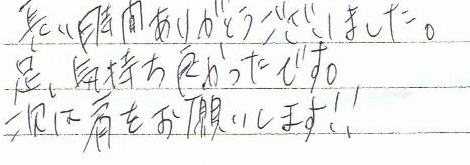 長い時間ありがとうございました。
足、気持ち良かったです。
次は肩をお願いします!!